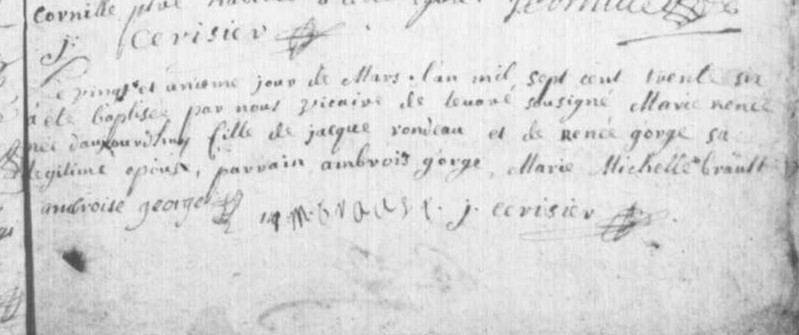 Cornille ptre
j. Cerisier
Le vingt et unieme jour de Mars. l'an mil sept cent trente six
a été baptisée par nous vicaire de sousigné Marie renée
née daujourdhuy fille de jacque rondeau et de Renée gorge sa
legitime epouse, parrain ambrois gorge, Marie Michelle brault
ambroise george m. braust. j. cerisier